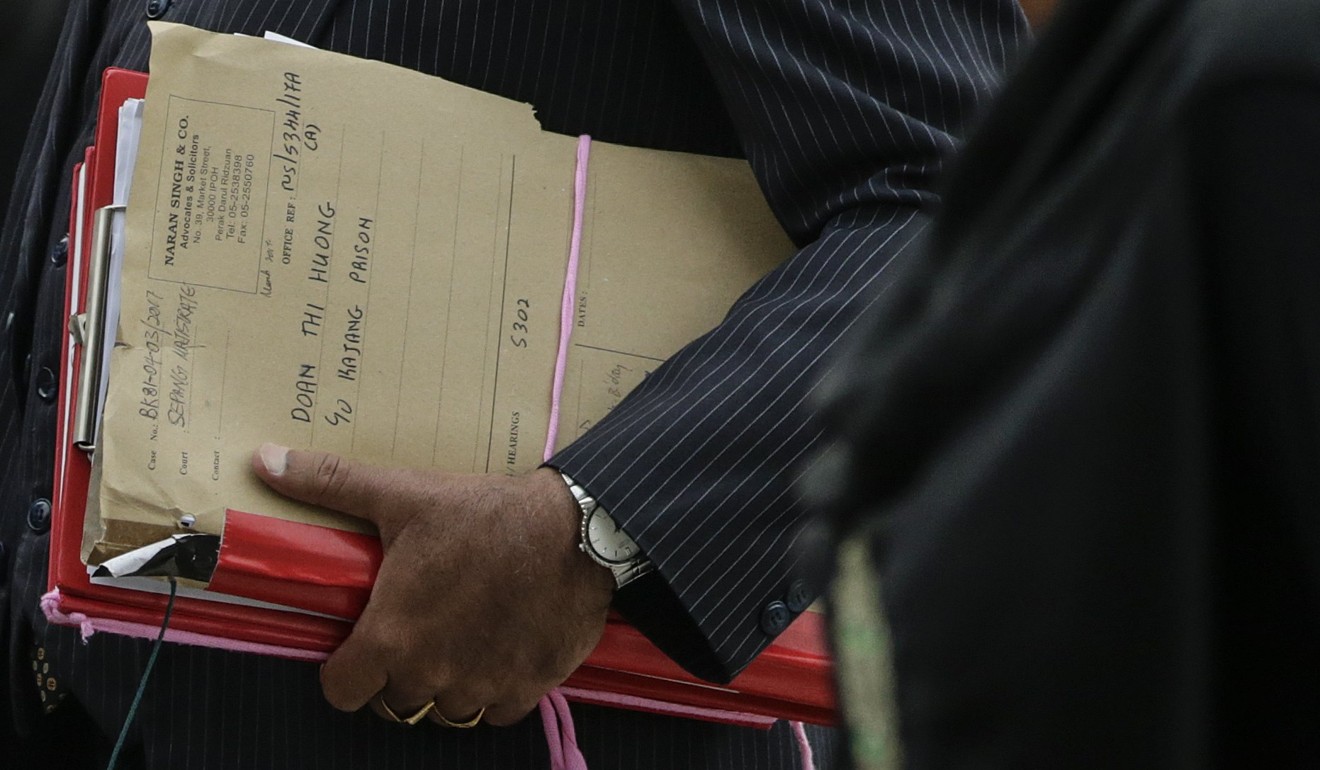 NARAN SINGH & CO.
Advocates & Solicitors
No. 39, Market Street,
30000 IPOH
Perak Darul Ridzuan
Tel: 05-2538398
Fax: 05-2550760
OFFICE REF: NS/5344/17A
(A)
Case No.: BKB1-04-03/2017
Court : SEPANG MAJISTRATE
Contact :
DOAN THI HUONG
GU KAJANG PRISON
S302
/ HEARINGS
DATES :